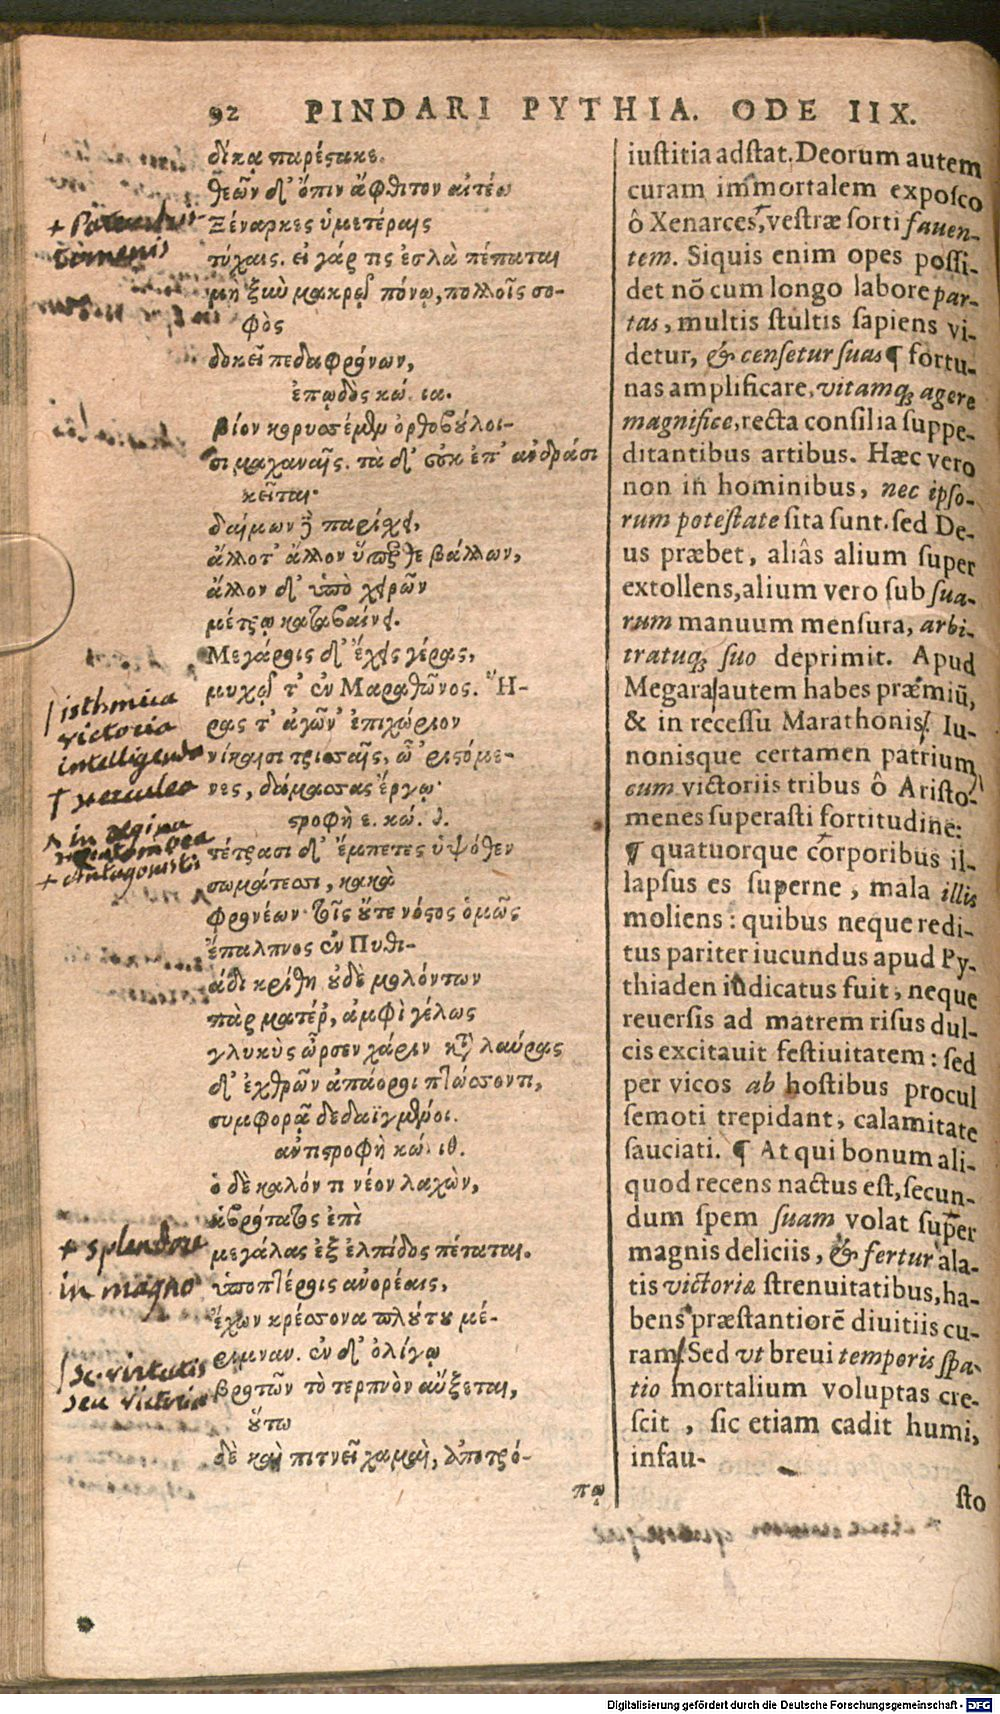 92 PINDARI PYTHIA. ODE IIX.
δίκα παρέστακε.
θεῶν δ' ὄπιν ἄφθιτον αἰτέω
Ξέναρκες ὑμετέραις
τύχαις. εἰ γάρ τις ἐσλὰ πέπαται
μὴ ξὺν μακρῷ πόνῳ, πολλοῖς σο-
φὸς
δοκεῖ πεδαφρόνων,
ἐπῳδὸς κώ. ια.
βίον κορυσσέμεν ὀρθοβούλοι-
σι μαχαναῖς. τὰ δ' οὐκ ἐπ' ἀνδράσι
κεῖται·
δαίμων δὲ παρίσχει,
ἄλλοτ' ἄλλον ὕπερθε βάλλων,
ἄλλον δ' ὑπὸ χειρῶν
μέτρῳ καταβαίνει.
Μεγάροις δ' ἔχεις γέρας,
μυχῷ τ' ἐν Μαραθῶνος. Ἥ-
ρας τ' ἀγῶν' ἐπιχώριον
νίκαισι τρισσαῖς, ὦ 'ριστόμε-
νες, δάμασσας ἔργῳ·
στροφὴ ε. κώ. ι.
τέτρασι δ' ἔμπετες ὑψόθεν
σωμάτεσσι, κακὰ
φρονέων· τοῖς οὔτε νόστος ὁμῶς
ἔπαλπνος ἐν Πυθι-
άδι κρίθη οὐδὲ μολόντων
πὰρ ματέρ', ἀμφὶ γέλως
γλυκὺς ὦρσεν χάριν κατὰ λαύρας
δ' ἐχθρῶν ἀπάοροι πτώσσοντι,
συμφορᾷ δεδαϊγμένοι.
ἀντιστροφὴ κώ. ιθ.
ὁ δὲ καλόν τι νέον λαχὼν,
ἁβρότατος ἐπὶ
μεγάλας ἐξ ἐλπίδος πέταται.
ὑποπτέροις ἀνορέαις,
ἔχων κρέσσονα πλούτου μέ-
ριμναν. ἐν δ' ὀλίγῳ
βροτῶν τὸ τερπνὸν αὔξεται,
οὕτω
δὲ καὶ πιτνεῖ χαμαὶ, ἀποτρό-
πῳ
iustitia adstat. Deorum autem
curam immortalem exposco
ô Xenarces, vestræ sorti fauen-
tem. Siquis enim opes possi-
det nō cum longo labore par-
tas, multis stultis sapiens vi-
detur, & censetur suas ¶ fortu-
nas amplificare, vitamq; agere
magnifice, recta consilia suppe-
ditantibus artibus. Hæc vero
non in hominibus, nec ipso-
rum potestate sita sunt. sed De-
us præbet, aliâs alium super
extollens, alium vero sub sua-
rum manuum mensura, arbi-
tratuq; suo deprimit. Apud
Megara autem habes præmiū,
& in recessu Marathonis. Iu-
nonisque certamen patrium
cum victoriis tribus ô Aristo-
menes superasti fortitudine:
¶ quatuorque corporibus il-
lapsus es superne, mala illis
moliens: quibus neque redi-
tus pariter iucundus apud Py-
thiaden iudicatus fuit, neque
reuersis ad matrem risus dul-
cis excitauit festiuitatem: sed
per vicos ab hostibus procul
semoti trepidant, calamitate
sauciati. ¶ At qui bonum ali-
quod recens nactus est, secun-
dum spem suam volat super
magnis deliciis, & fertur ala-
tis victoriæ strenuitatibus, ha-
bens præstantiorē diuitiis cu-
ram. Sed vt breui temporis spa-
tio mortalium voluptas cre-
scit, sic etiam cadit humi,
infau-
sto
isthmica
victoria
intelligenda
† herculea
^ in ægina
+ Antagonistis
+ splendore
in magno
sc. virtutis
seu victoriæ
Digitalisierung gefördert durch die Deutsche Forschungsgemeinschaft - DFG